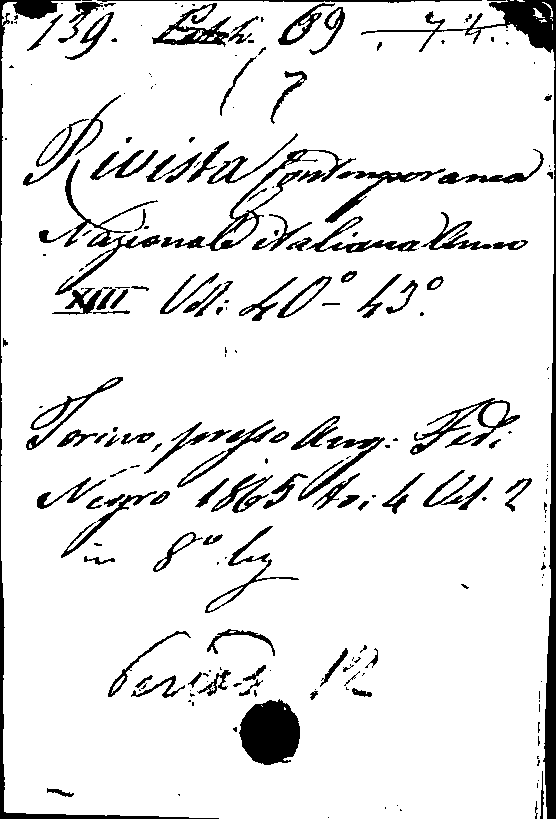 139. 69 . 7. 4.
17
Rivista Contemporanea
Nazionale italiana Anno
XIII Vol: 40° - 43°.
Torino, presso Aug: Fed:
Negro 1865 to: 4 Vol. 2
in 8° leg
Period 12